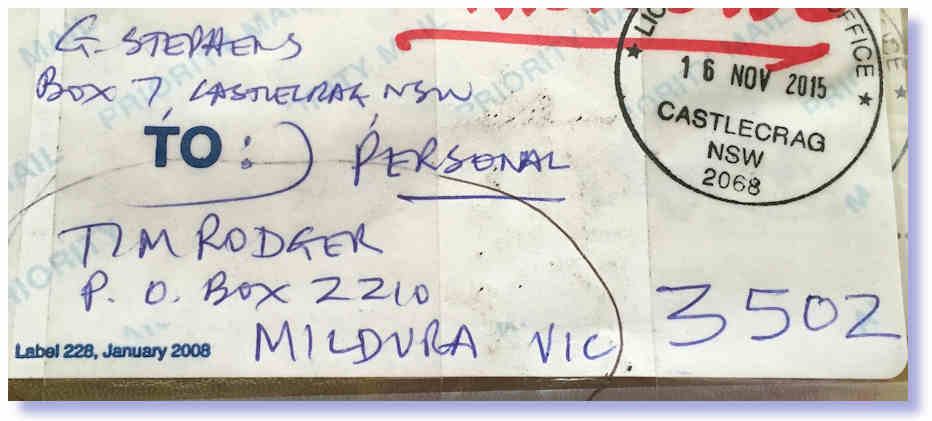 G. STEPHENS
BOX 7, CASTLECRAG NSW
TO:
PERSONAL
TIM RODGER
P. O. BOX 2210
MILDURA VIC 3502
Label 228, January 2008
OFFICE
16 NOV 2015
CASTLECRAG
NSW
2068
PRIORITY MAIL
PRIORITY MAIL